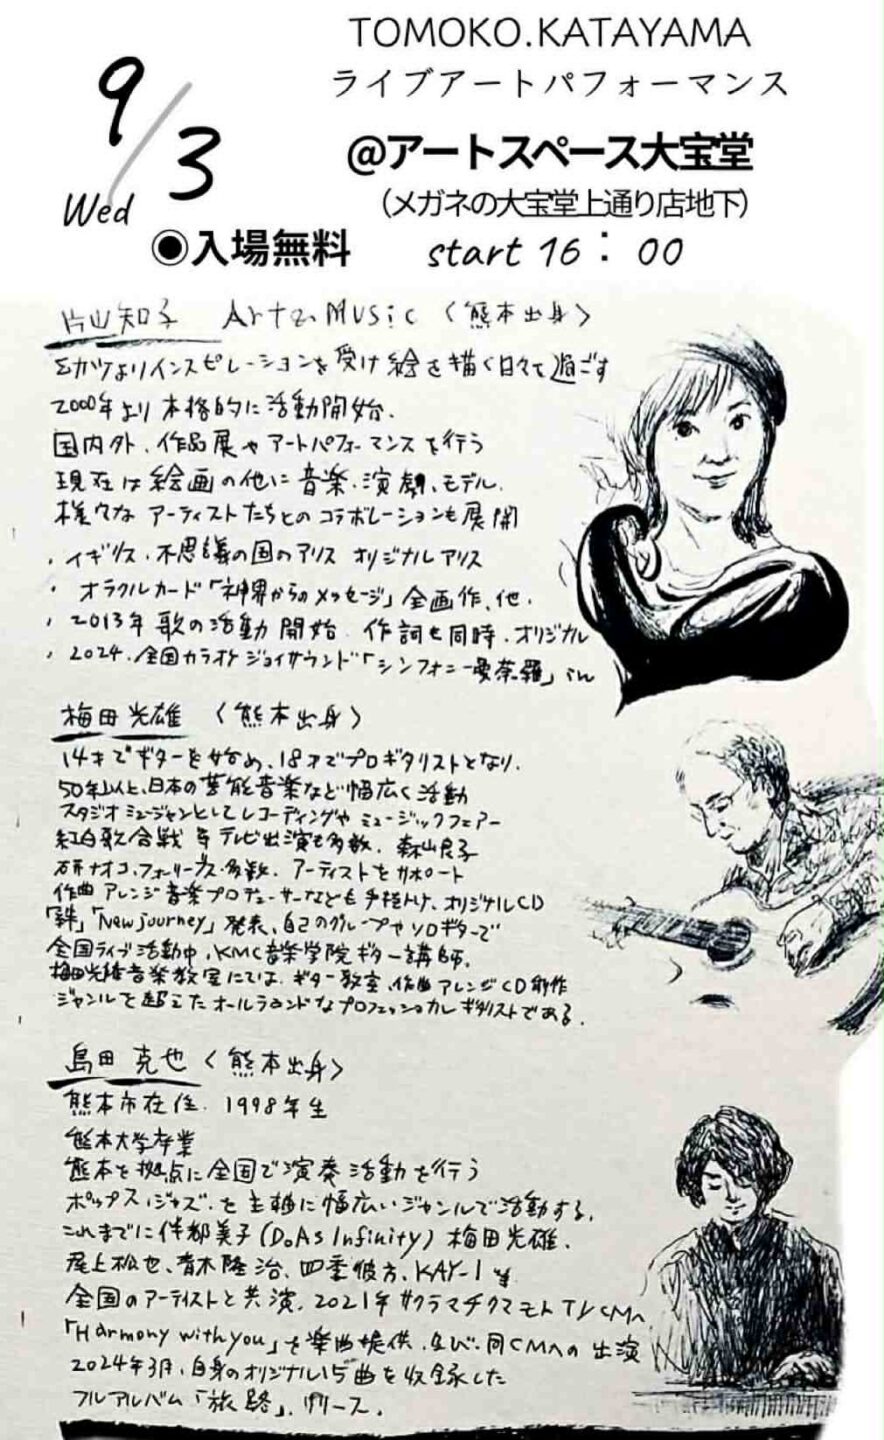 TOMOKO.KATAYAMA
ライブアートパフォーマンス
9/3
Wed
@アートスペース大宝堂
(メガネの大宝堂上通り店地下)
◉入場無料
start 16:00
片山知子 Art&Music〈熊本出身〉
インスピレーションを受け絵を描く日々を過ごす
2000年より本格的に活動開始.
国内外、作品展やアートパフォーマンスを行う
現在は絵画の他に音楽、演劇、モデル.
様々なアーティストたちとのコラボレーションも展開
・イギリス・不思議の国のアリス オリジナルアリス
・オラクルカード「神界からのメッセージ」全画作、他.
・2013年 歌の活動開始 作詞も同時、オリジナル
・2024.全国カラオケジョイサウンド「シンフォニー曼荼羅」
梅田光雄〈熊本出身〉
14才でギターを始め、18才でプロギタリストとなり.
50年以上、日本の芸能音楽など幅広く活動
スタジオミュージャンとしてレコーディングや ミュージックフェアー
紅白歌合戦等テレビ出演も多数. 森山良子
研ナオコ、フォーリーブス・多数. アーティストをサポート
作曲アレンジ音楽プロデューサーなども手掛け、オリジナルCD
「絆」「New journey」発表、自己のグループやソロギターで
全国ライブ活動中、KMC音楽学院ギター講師.
梅田光雄音楽教室にては、ギター教室、作曲アレンジCD制作
ジャンルを超えたオールラウンドなプロフェッショナルギタリストである.
島田克也〈熊本出身〉
熊本市在住. 1998年生
熊本大学卒業
熊本を拠点に全国で演奏活動を行う
ポップス、ジャズ、を主軸に幅広いジャンルで活動する.
これまでに伴都美子(Do As Infinity)梅田光雄.
尾上松也、青木隆治、四季彼方、KAY-I 等
全国のアーティストと共演. 2021年サクラマチクマモトTVCMへ
「Harmony with you」を楽曲提供、及び、同CMへの出演
2024年3月、自身のオリジナル15曲を収録した
フルアルバム「旅路」、リリース.